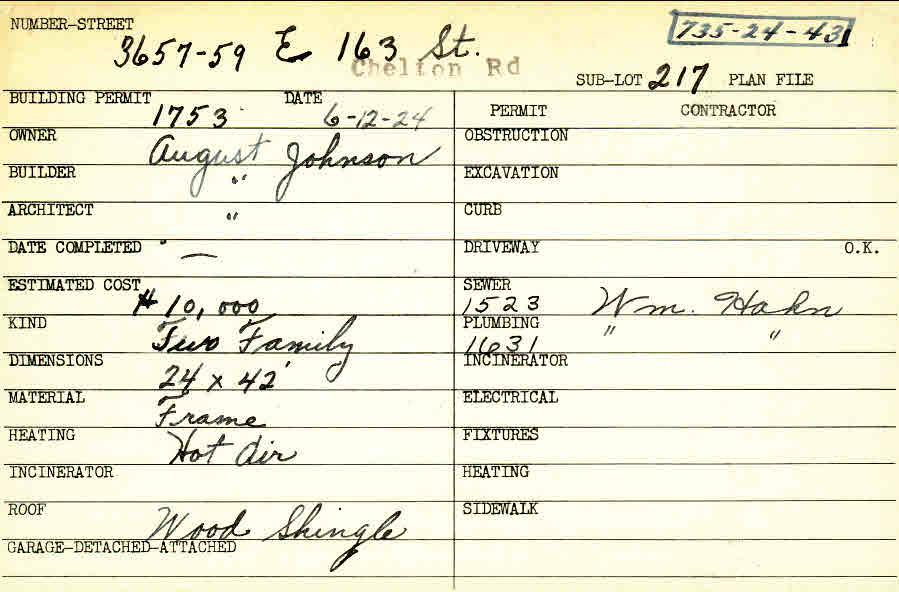 NUMBER-STREET
3657-59 E 163 St.
735-24-43
Chelton Rd
SUB-LOT 217 PLAN FILE
BUILDING PERMIT DATE
1753 6-12-24
PERMIT CONTRACTOR
OWNER August Johnson
OBSTRUCTION
BUILDER "
EXCAVATION
ARCHITECT "
CURB
DATE COMPLETED —
DRIVEWAY O.K.
ESTIMATED COST
$10,000
SEWER
1523 Wm. Hahn
KIND
Two Family
PLUMBING " "
1631
DIMENSIONS
24 x 42'
INCINERATOR
MATERIAL
Frame
ELECTRICAL
HEATING
Hot Air
FIXTURES
INCINERATOR
HEATING
ROOF
Wood Shingle
SIDEWALK
GARAGE-DETACHED-ATTACHED